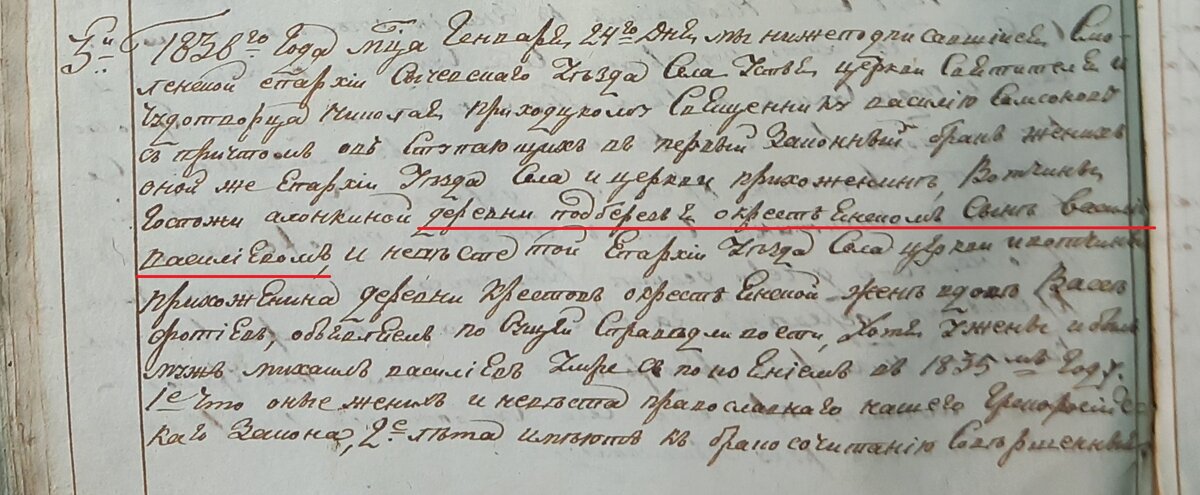 5й 1838го Года мца Генваря 24го дня мы нижеподписавшїися Смо-
ленской епархїи Сычевскаго Уезда Села Устья церкви Святителя и
Чудотворца Николая приходскому Священнику василїю Самсонову
съ причтомъ объ вступающихъ въ первый Законный бракъ женихе
оной же Епархїи Уезда Села и церкви прихоженинъ, вотчины
Госпожи деревни подберезья о крестьянскомъ сыне васил
василїевомъ, и невесте той Епархїи Уезда Села церкви и вотчины
прихоженина деревни крестовъ о крестьянской жене вдове Васс
фротїевъ, объявляемъ по сущей Справедливости, хотя у жены и былъ
мужъ михаилъ василїевъ умре въ 1835мъ Году.
1е Что оные женихъ и невеста православнаго нашего Грекороссїйс-
каго Закона, 2е лета имеютъ къ бракосочитанїю Совершенныя